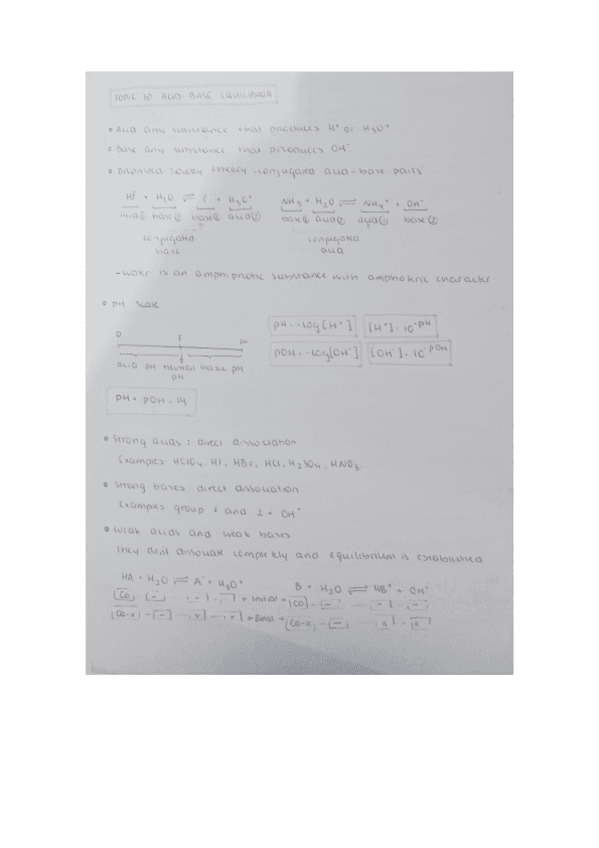 TOPIC 10 ACID BASE EQUILIBRIA
• Acid any substance that produces H⁺ or H₃O⁺
• Base any substance that produces OH⁻
• Brønsted Lowry theory conjugate acid-base pairs
HF + H₂O ⇌ F⁻ + H₃O⁺ NH₃ + H₂O ⇌ NH₄⁺ + OH⁻
acid① base② base① acid② base① acid② acid① base②
conjugate conjugate
base acid
-water is an amphiprotic substance with amphoteric character
• pH scale
0 7 14
acid pH neutral basic pH
pH
pH = -log[H⁺] [H⁺] = 10^-pH
pOH = -log[OH⁻] [OH⁻] = 10^-pOH
pH + pOH = 14
• Strong acids : direct dissociation
Examples HClO₄, HI, HBr, HCl, H₂SO₄, HNO₃
• Strong bases direct dissociation
Examples group 1 and 2 + OH⁻
• Weak acids and weak bases
They don't dissociate completely and equilibrium is established
HA + H₂O ⇌ A⁻ + H₃O⁺ B + H₂O ⇌ HB⁺ + OH⁻
Co - - - Initial Co - - -
Co-x - x x Co-x - x x